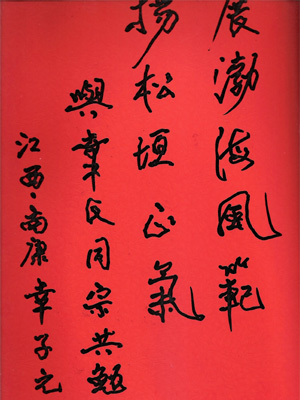 展渤海風範
揚松垣正氣
與幸氏同宗共勉
江西·南康幸子元